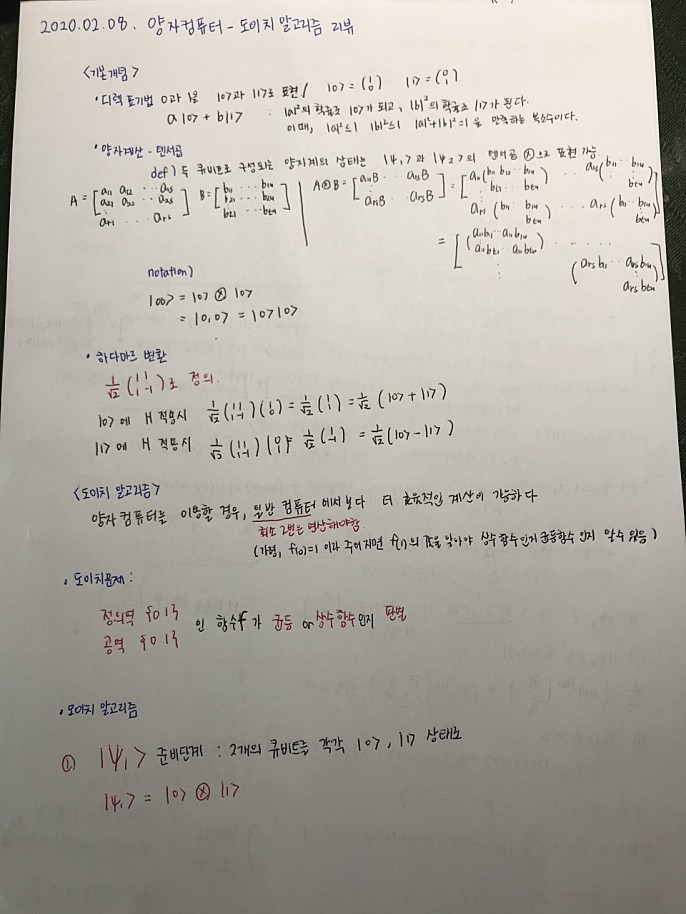 2020.02.08. 양자컴퓨터 - 도이치 알고리즘 리뷰
<기본개념>
· 디랙 표기법 0과 1을 |0>과 |1>로 표현 / |0> = (1 0) |1> = (0 1)
a|0> + b|1> : |a|²의 확률로 |0>가 되고, |b|²의 확률로 |1>가 된다.
이때, |a|²≤1 |b|²≤1 |a|²+|b|²=1 을 만족하는 복소수이다.
· 양자계산 - 텐서곱
def) 두 큐비트로 구성되는 양자계의 상태는 |ψ₁>과 |ψ₂>의 텐서곱 ⊗으로 표현 가능
A = [a₁₁ a₁₂ ⋯ a₁s B = [b₁₁ ⋯ b₁u A⊗B = [a₁₁B ⋯ a₁sB = [a₁₁(b₁₁ b₁₂ ⋯ b₁u ⋯ a₁s(b₁₁ ⋯ b₁u
a₂₁ a₂₂ ⋯ a₂s b₂₁ ⋯ b₂u ⋮ ⋮ btu)
ar₁ ⋯ ars] bt₁ ⋯ btu] ar₁B ⋯ arsB] ar₁(b₁₁ ⋯ b₁u btu) ⋯ ars(b₁₁ ⋯ b₁u btu)]
= [(a₁₁b₁₁ ⋯ a₁₁b₁u ⋯
a₁₁bt₁ ⋯ a₁₁btu) (arsb₁₁ ⋯ arsb₁u
⋮ arsbtu)]
notation)
|00> = |0> ⊗ |0>
= |0,0> = |0>|0>
· 하다마르 변환
1/√2 (1 1 1 -1)로 정의.
|0>에 H 적용시 1/√2 (1 1 1 -1)(1 0) = 1/√2 (1 1) = 1/√2 (|0> + |1>)
|1>에 H 적용시 1/√2 (1 1 1 -1)(0 1) = 1/√2 (1 -1) = 1/√2 (|0> - |1>)
<도이치 알고리즘>
양자컴퓨터를 이용할 경우, 일반 컴퓨터에서보다 더 효율적인 계산이 가능하다
최소 2번은 연산해야함.
(가령, f(0)=1 이라 주어지면 f(1)의 값을 알아야 상수함수인지 균등함수인지 알 수 있음)
· 도이치문제 :
정의역 {0 1}
공역 {0 1} 인 함수 f 가 균등 or 상수함수인지 판별
· 도이치 알고리즘
① |ψ₁> 준비단계 : 2개의 큐비트를 각각 |0>, |1> 상태로
|ψ₁> = |0> ⊗ |1>